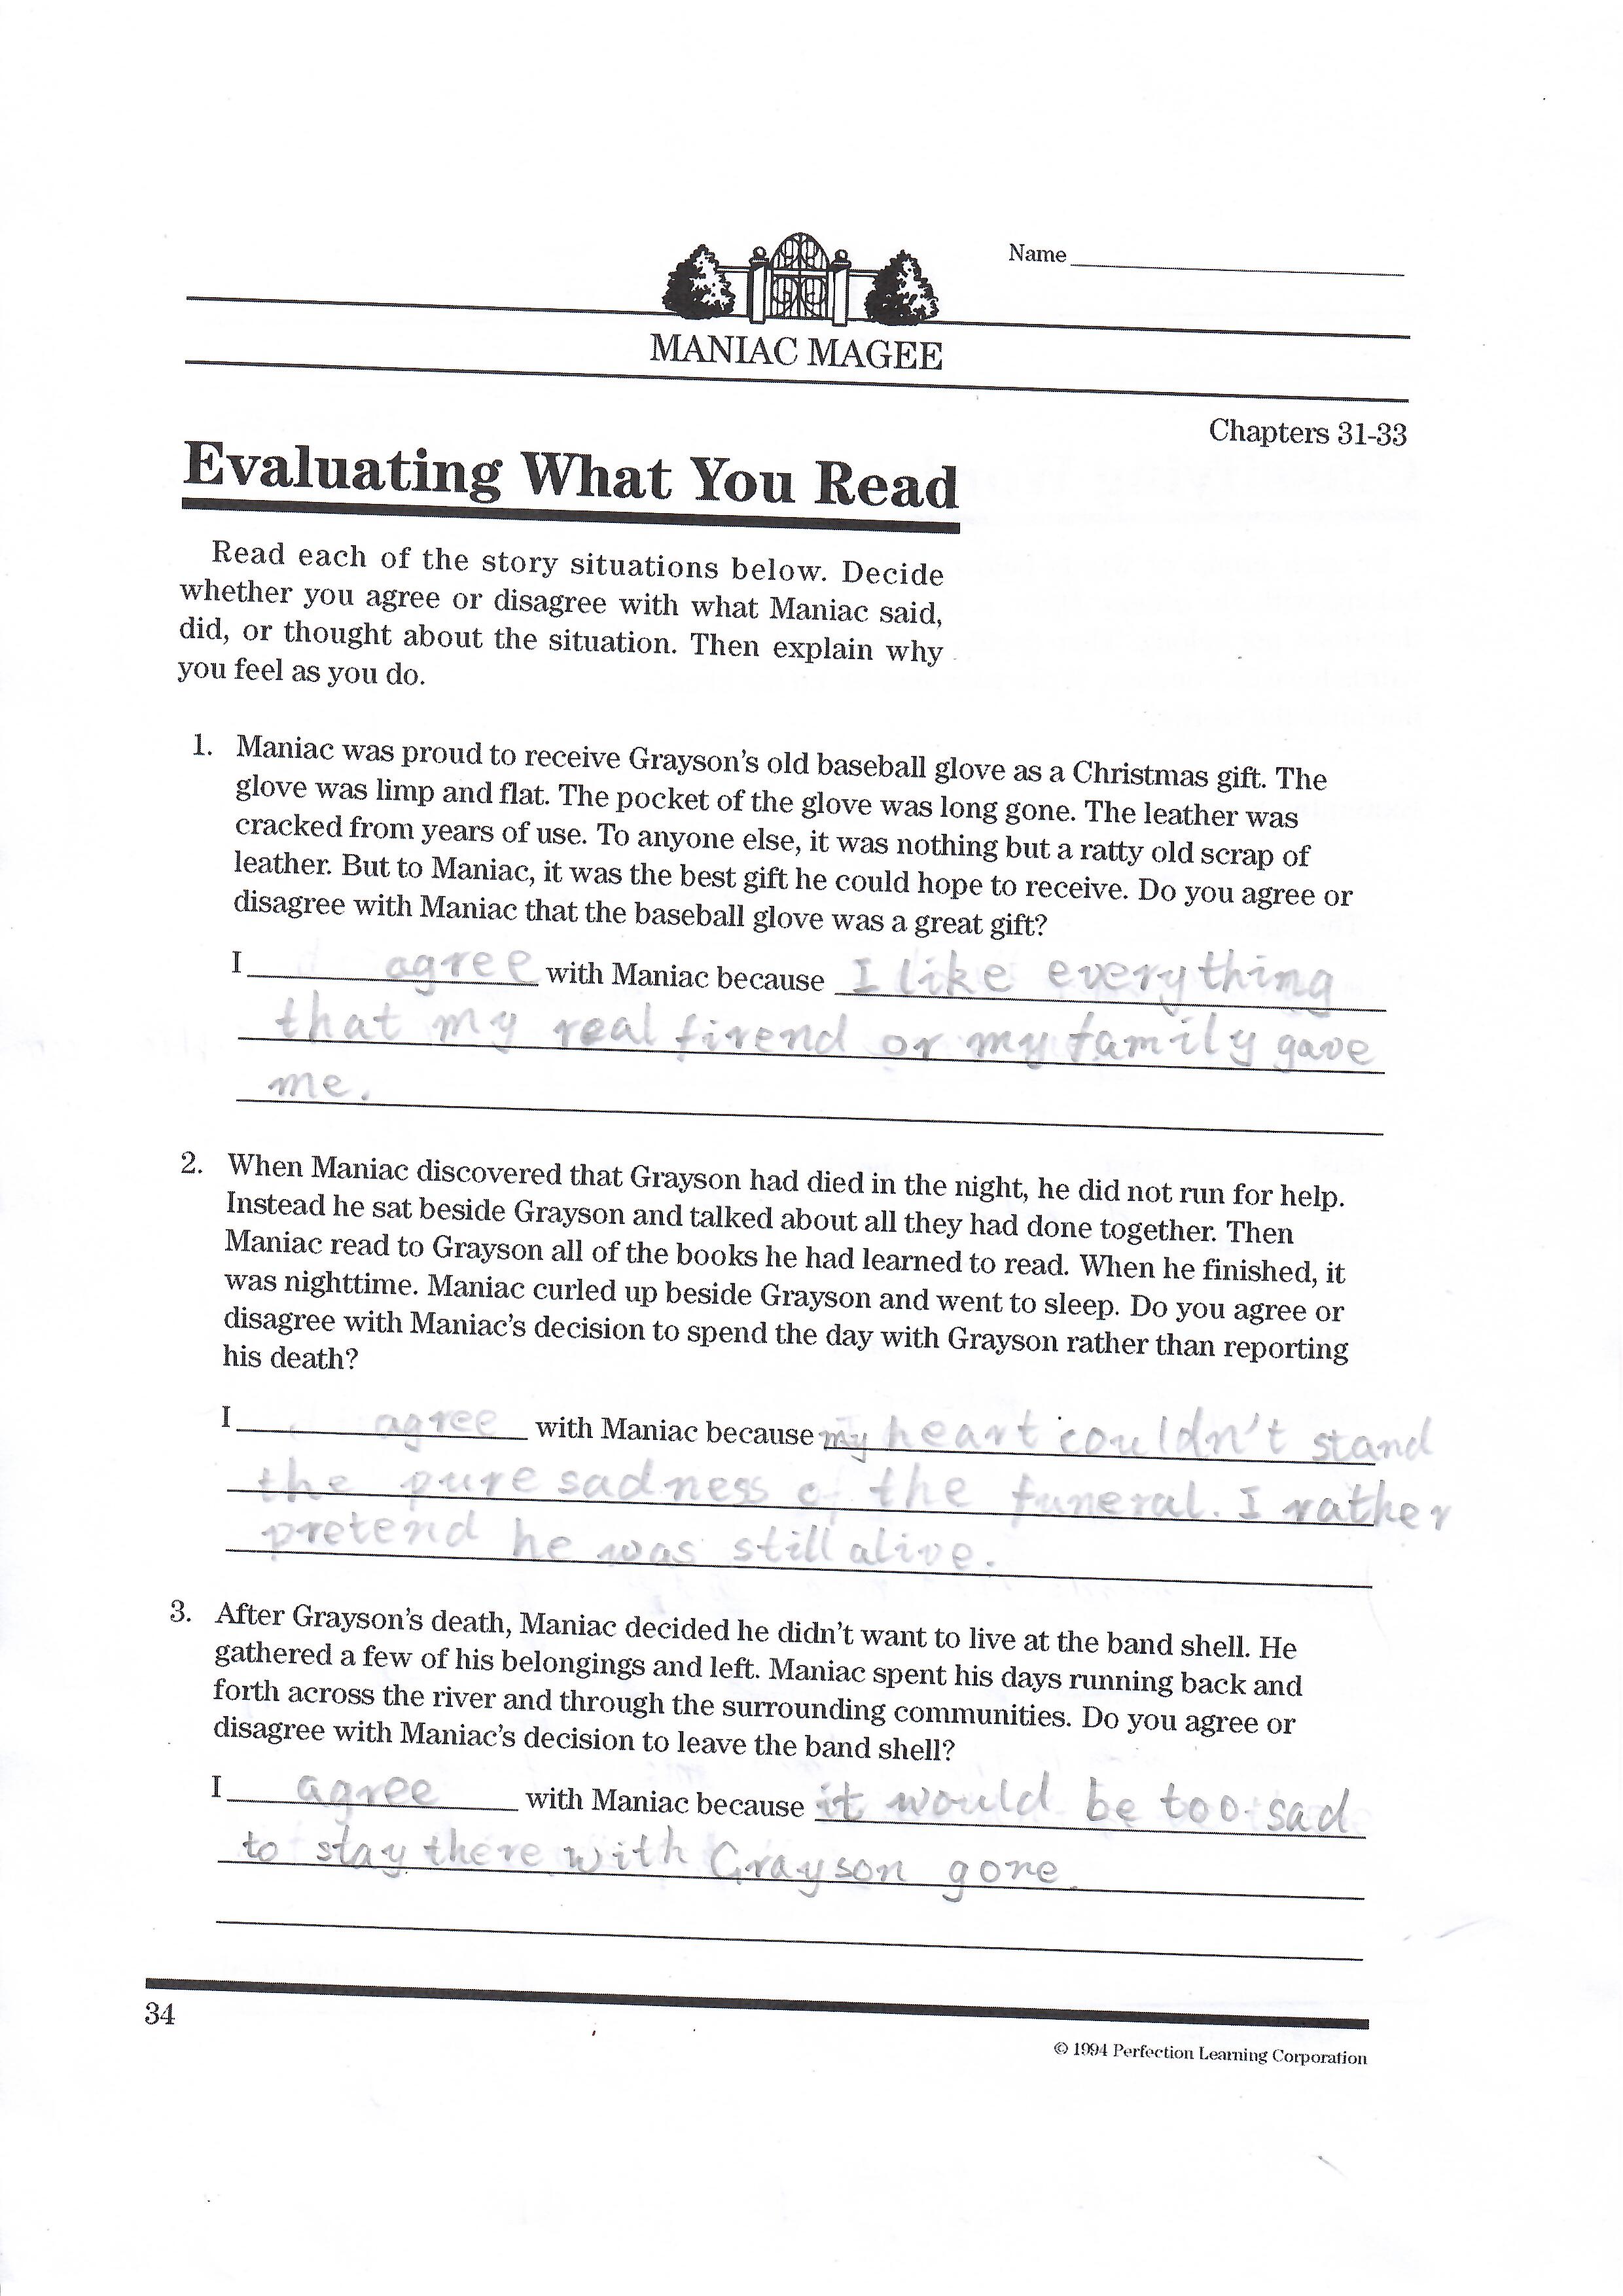 Name
MANIAC MAGEE
Chapters 31-33
Evaluating What You Read
Read each of the story situations below. Decide
whether you agree or disagree with what Maniac said,
did, or thought about the situation. Then explain why
you feel as you do.
1. Maniac was proud to receive Grayson's old baseball glove as a Christmas gift. The
glove was limp and flat. The pocket of the glove was long gone. The leather was
cracked from years of use. To anyone else, it was nothing but a ratty old scrap of
leather. But to Maniac, it was the best gift he could hope to receive. Do you agree or
disagree with Maniac that the baseball glove was a great gift?
I agree with Maniac because I like everything
that my real firend or my family gave
me.
2. When Maniac discovered that Grayson had died in the night, he did not run for help.
Instead he sat beside Grayson and talked about all they had done together. Then
Maniac read to Grayson all of the books he had learned to read. When he finished, it
was nighttime. Maniac curled up beside Grayson and went to sleep. Do you agree or
disagree with Maniac's decision to spend the day with Grayson rather than reporting
his death?
I agree with Maniac because my heart couldn't stand
the pure sadness of the funeral. I rather
pretend he was still alive.
3. After Grayson's death, Maniac decided he didn't want to live at the band shell. He
gathered a few of his belongings and left. Maniac spent his days running back and
forth across the river and through the surrounding communities. Do you agree or
disagree with Maniac's decision to leave the band shell?
I agree with Maniac because it would be too sad
to stay there with Grayson gone.
34
© 1994 Perfection Learning Corporation